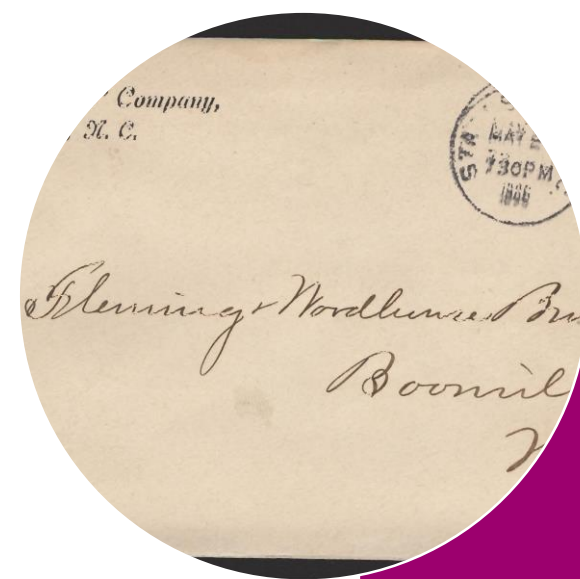 Company,
N. C.
STA
MAY
730PM
1896
Fleming & Woodhouse
Boonvil